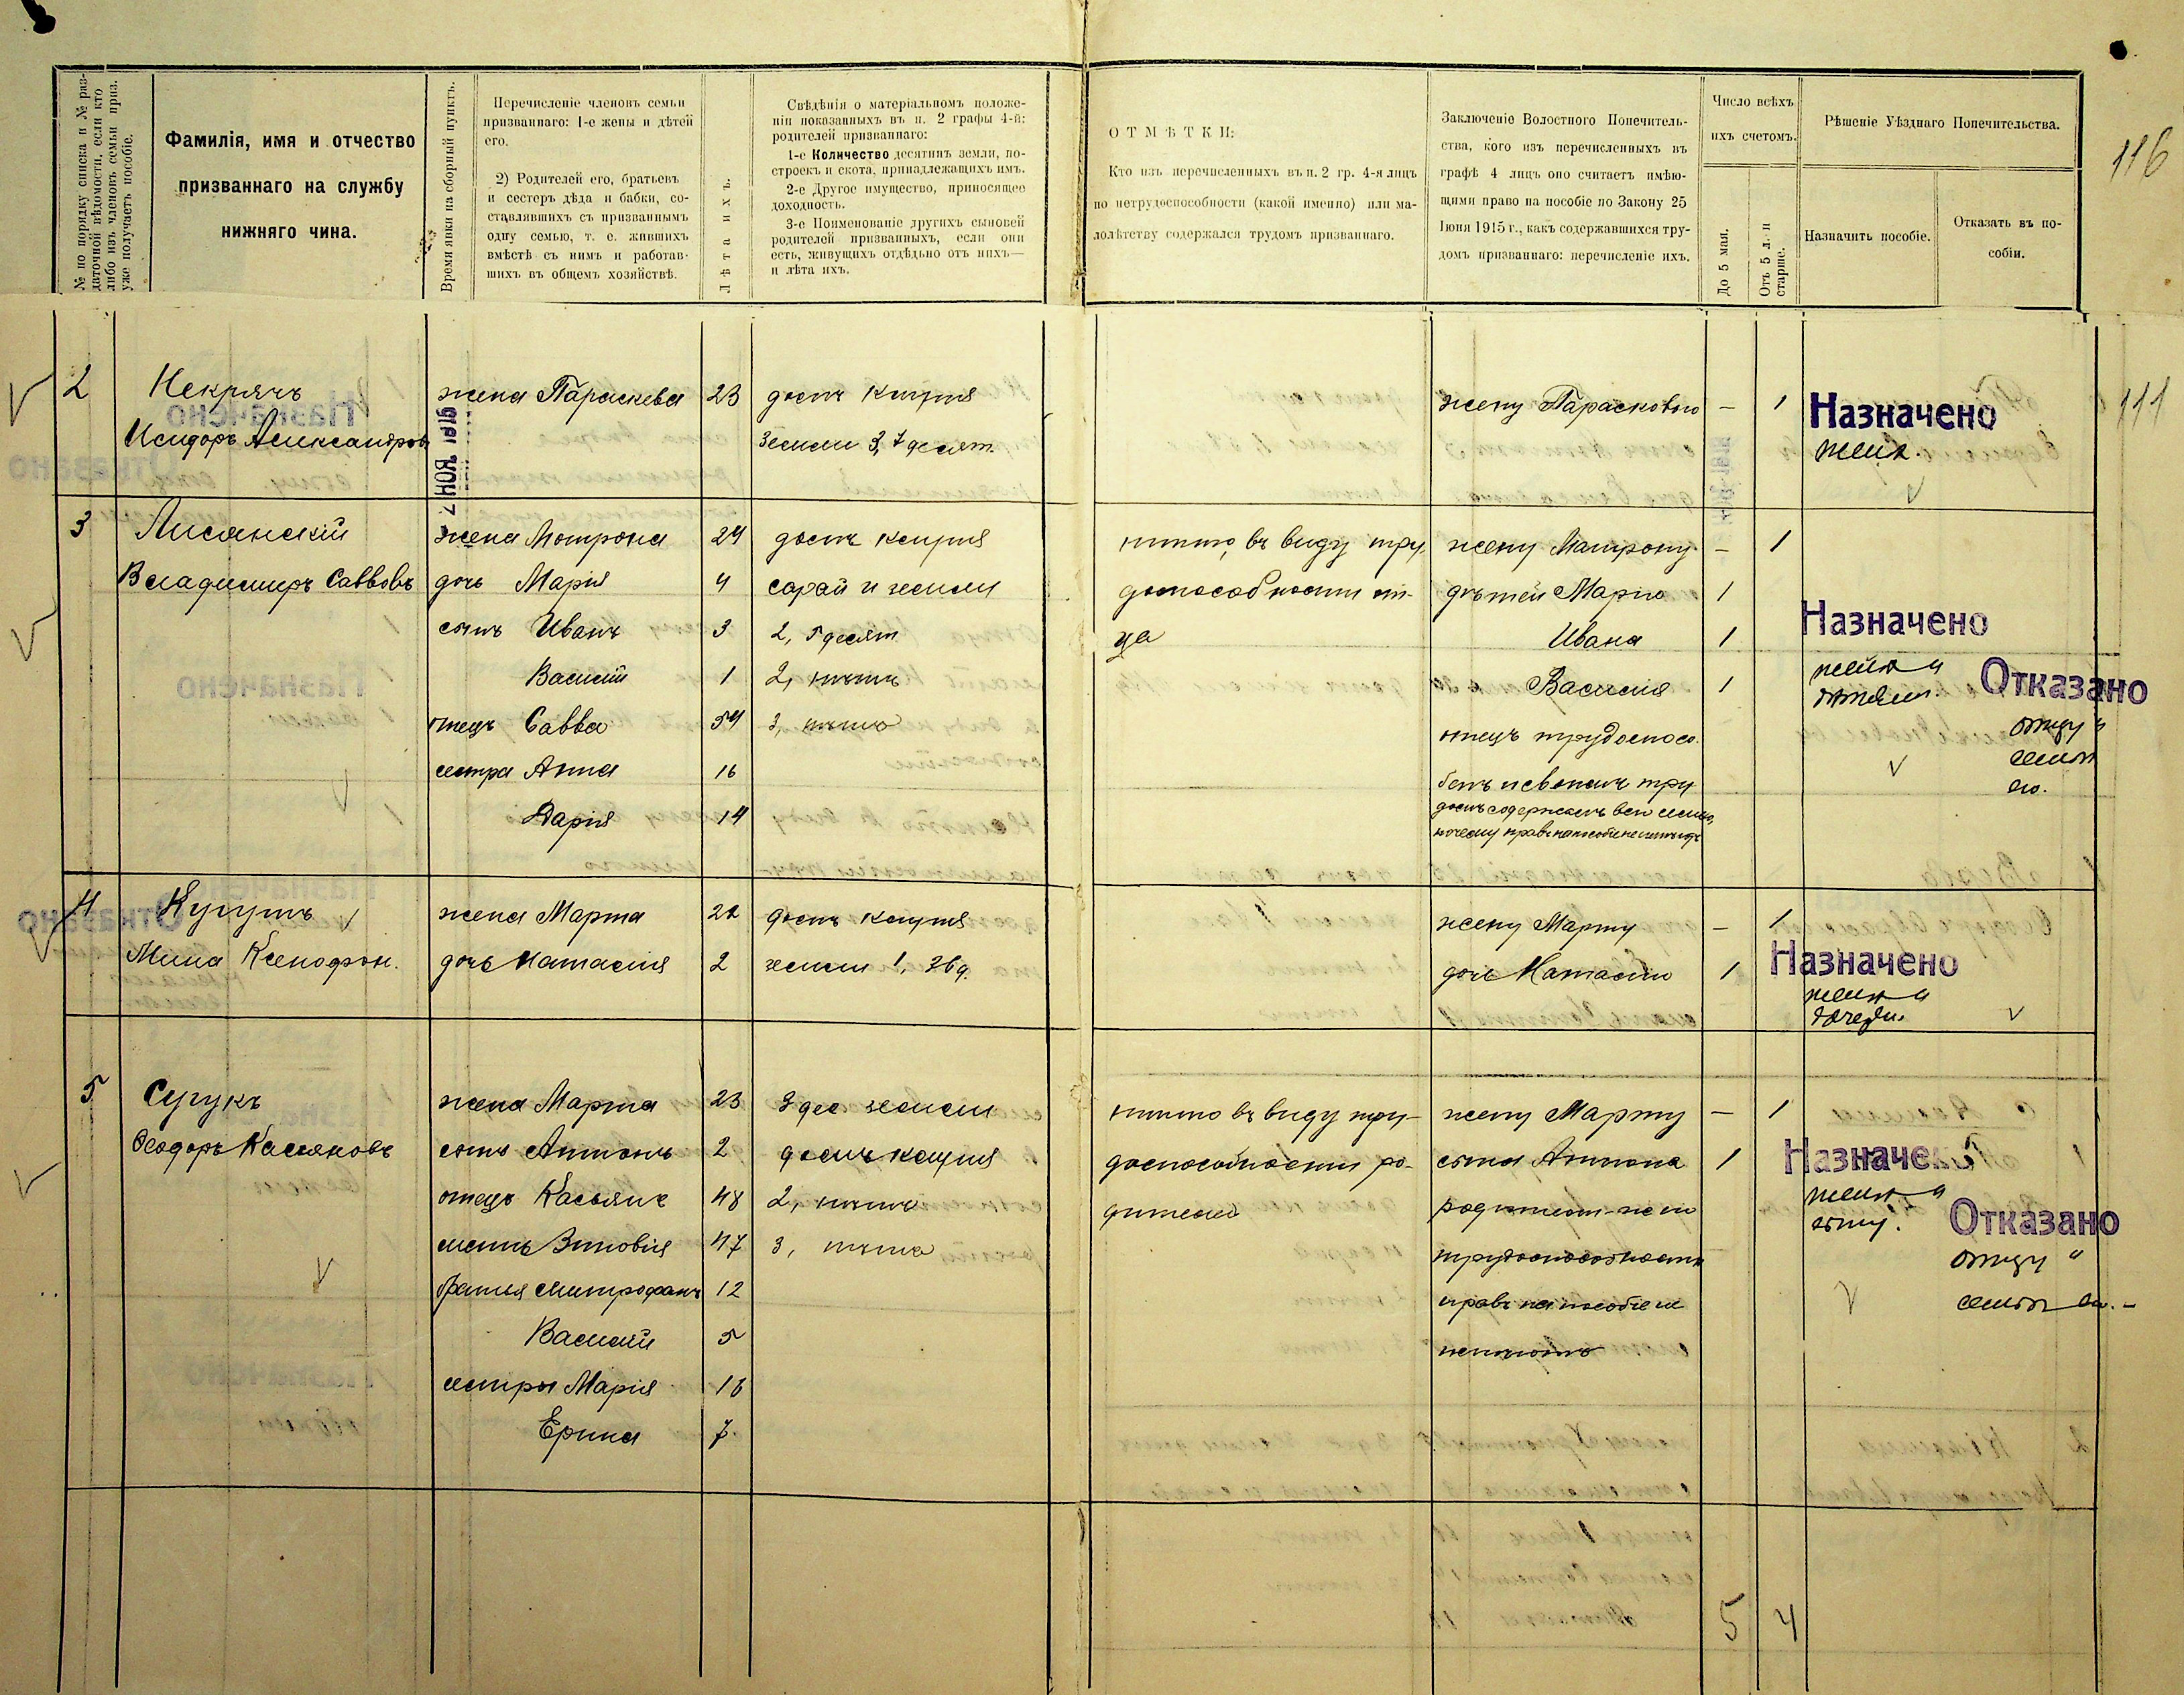 № по порядку списка и № раз-
даточной вѣдомости, если кто
либо изъ членовъ семьи приз.
уже получаетъ пособіе.
Фамилія, имя и отчество
призваннаго на службу
нижняго чина.
Время явки на сборный пунктъ.
Перечисленіе членовъ семьи
призваннаго: 1-е жены и дѣтей
его.
2) Родителей его, братьевъ
и сестеръ дѣда и бабки, со-
ставлявшихъ съ призваннымъ
одну семью, т. е. жившихъ
вмѣстѣ съ нимъ и работав-
шихъ въ общемъ хозяйствѣ.
Лѣта ихъ.
Свѣдѣнія о матеріальномъ положе-
ніи показанныхъ въ п. 2 графы 4-й:
родителей призваннаго:
1-е Количество десятинъ земли, по-
строекъ и скота, принадлежащихъ имъ.
2-е Другое имущество, приносящее
доходность.
3-е Поименованіе другихъ сыновей
родителей призванныхъ, если они
есть, живущихъ отдѣльно отъ нихъ—
и лѣта ихъ.
ОТМѢТКИ:
Кто изъ перечисленныхъ въ п. 2 гр. 4-я лицъ
по нетрудоспособности (какой именно) или ма-
лолѣтству содержался трудомъ призваннаго.
Заключеніе Волостного Попечитель-
ства, кого изъ перечисленныхъ въ
графѣ 4 лицъ оно считаетъ имѣю-
щими право на пособіе по Закону 25
Іюня 1915 г., какъ содержавшихся тру-
домъ призваннаго: перечисленіе ихъ.
Число всѣхъ
ихъ счетомъ.
До 5 мая.
Отъ 5 л. и
старше.
Рѣшеніе Уѣзднаго Попечительства.
Назначить пособіе.
Отказать въ по-
собіи.
116
111
2 Некрячъ жена Параскева 23 домъ клуня жену Парасковію — 1 Назначено
Исидоръ Александровъ земли 3,7 десят. женѣ.
3 Лисянскій жена Мотрона 24 домъ клуня никто, въ виду тру- жену Матрону — 1
Владимиръ Саввовъ дочь Марія 4 сарай и земли доспособности от- дѣтей Марію 1
сынъ Иванъ 3 2,5 десят ца Ивана 1 Назначено
Василій 1 2, нѣтъ Василія 1 женѣ и Отказано
дѣтям.
отецъ Савва 54 3, нѣтъ отецъ трудоспосо- отцу и
сестра Анна 16 бенъ и своимъ тру- семьѣ
его.
Дарія 14 домъ содержитъ всю семью,
почему правъ на пособіе не имѣетъ
4 Кугутъ жена Марта 22 домъ клуня жену Марту — 1
Мина Ксенофон. дочь Наталія 2 земли 1,36 д. дочь Наталію 1 Назначено
женѣ и
дочери.
5 Сугукъ жена Марта 23 3 дес земли никто въ виду тру- жену Марту — 1
Феодоръ Касяновъ сынъ Антонъ 2 домъ клуня доспособности ро- сына Антона 1 Назначено
отецъ Касьянъ 48 2, нѣтъ дителей родители-же по женѣ и
сыну. Отказано
мать Зиновія 47 3, нѣтъ трудоспособности отцу и
братья Митрофанъ 12 правъ на пособіе не семьѣ его.
Василій 5 имѣютъ
сестры Марія 16
Ерина 7
5 4